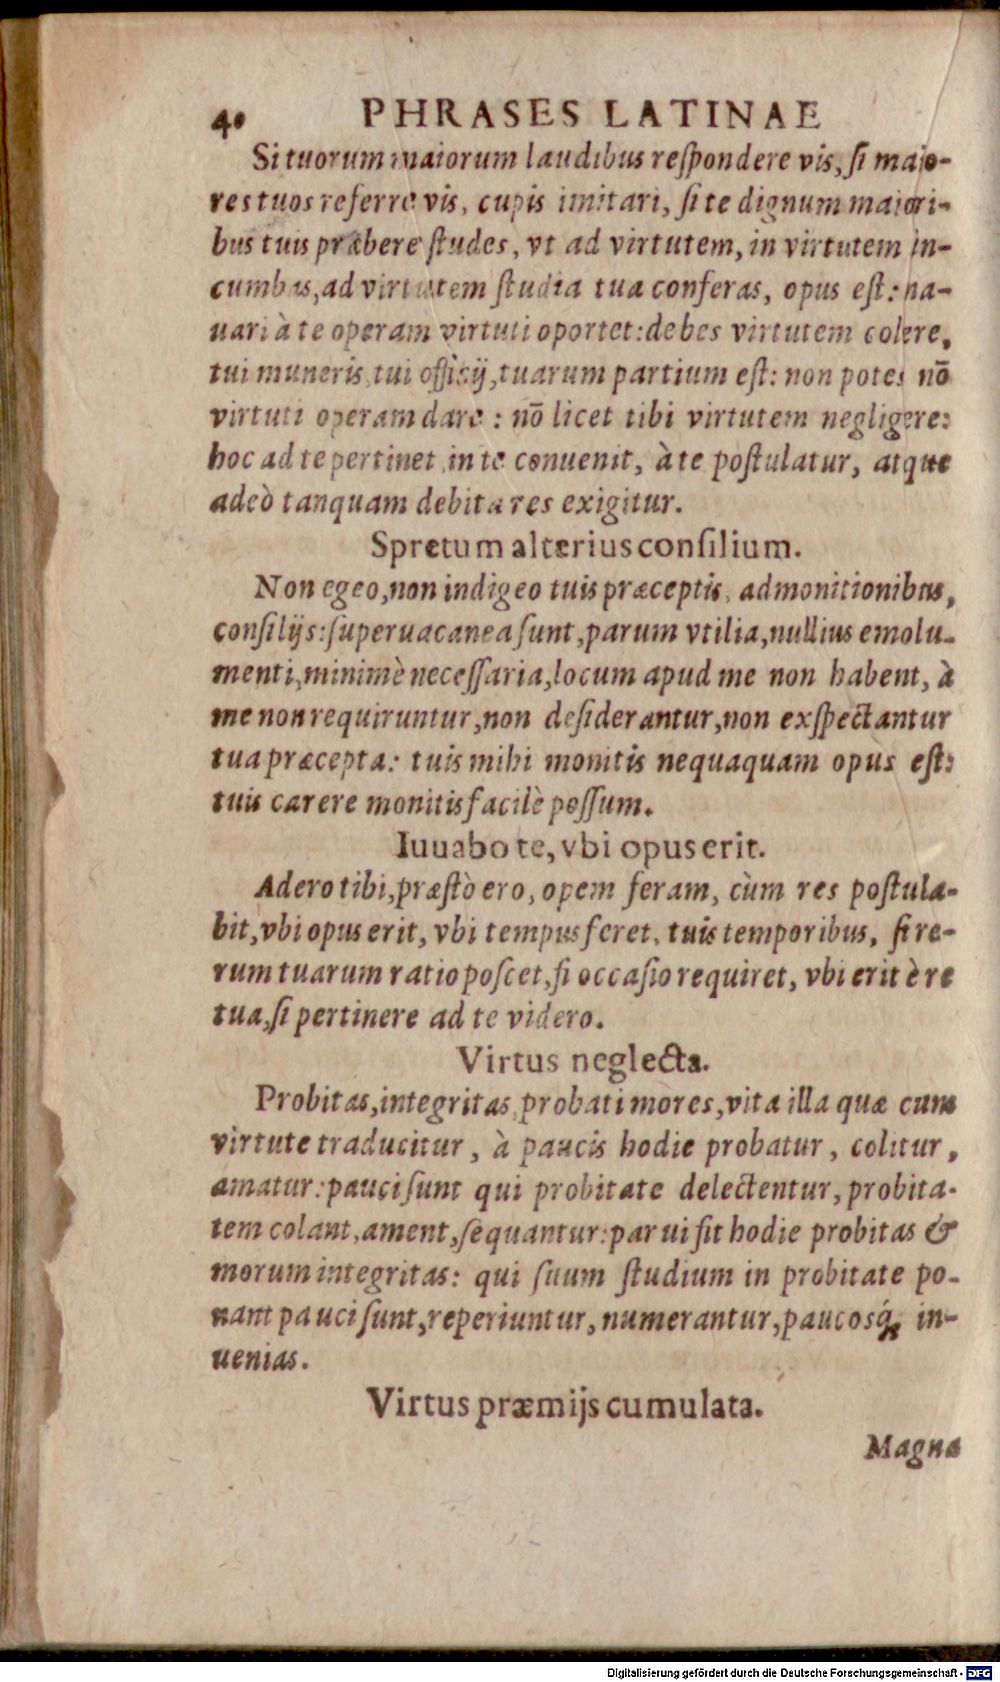 40 PHRASES LATINAE
Si tuorum maiorum laudibus reſpondere vis, ſi maio-
res tuos referre vis, cupis imitari, ſi te dignum maiori-
bus tuis præbere ſtudes, vt ad virtutem, in virtutem in-
cumbas, ad virtutem ſtudia tua conferas, opus eſt: na-
uari à te operam virtuti oportet: debes virtutem colere,
tui muneris, tui officij, tuarum partium eſt: non potes nō
virtuti operam dare: nō licet tibi virtutem negligere:
hoc ad te pertinet, in te conuenit, à te poſtulatur, atque
adeò tanquam debita res exigitur.
Spretum alterius conſilium.
Non egeo, non indigeo tuis præceptis, admonitionibus,
conſilijs: ſuperuacanea ſunt, parum vtilia, nullius emolu-
menti, minimè neceſſaria, locum apud me non habent, à
me non requiruntur, non deſiderantur, non exſpectantur
tua præcepta: tuis mihi monitis nequaquam opus eſt:
tuis carere monitis facilè poſſum.
Iuuabo te, vbi opus erit.
Adero tibi, præſtò ero, opem feram, cùm res poſtula-
bit, vbi opus erit, vbi tempus feret, tuis temporibus, ſi re-
rum tuarum ratio poſcet, ſi occaſio requiret, vbi erit è re
tua, ſi pertinere ad te videro.
Virtus neglecta.
Probitas, integritas, probati mores, vita illa quæ cum
virtute traducitur, à paucis hodie probatur, colitur,
amatur: pauci ſunt qui probitate delectentur, probita-
tem colant, ament, ſequantur: parui fit hodie probitas &
morum integritas: qui ſuum ſtudium in probitate po-
nant pauci ſunt, reperiuntur, numerantur, paucosq́; in-
uenias.
Virtus præmijs cumulata.
Magna
Digitalisierung gefördert durch die Deutsche Forschungsgemeinschaft - DFG